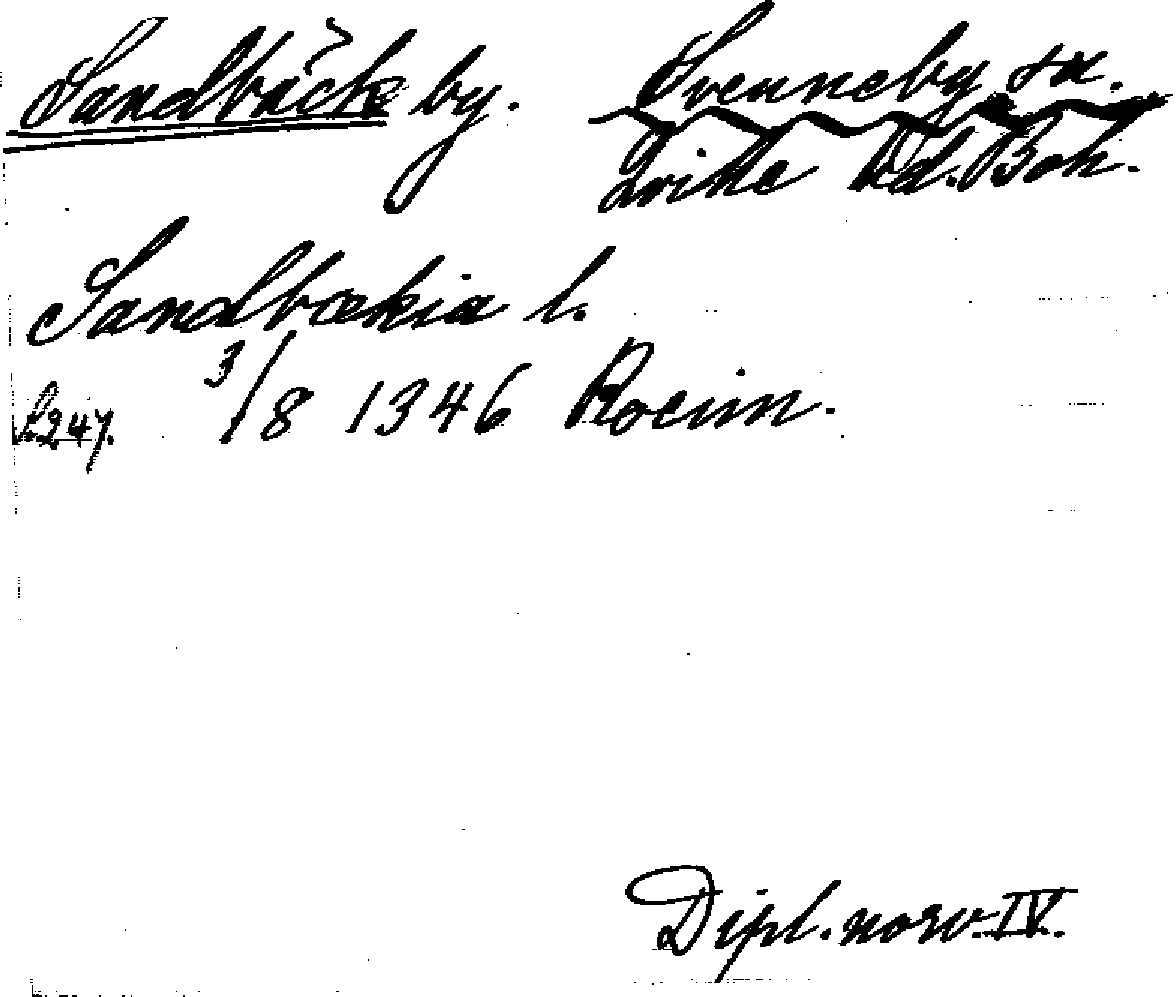 Sandbäck by. Svenneby sn.
Qville Hd. Boh.
Sandbækia l.
S. 247. 3/8 1346 Roeim.
Dipl. norv. IV.